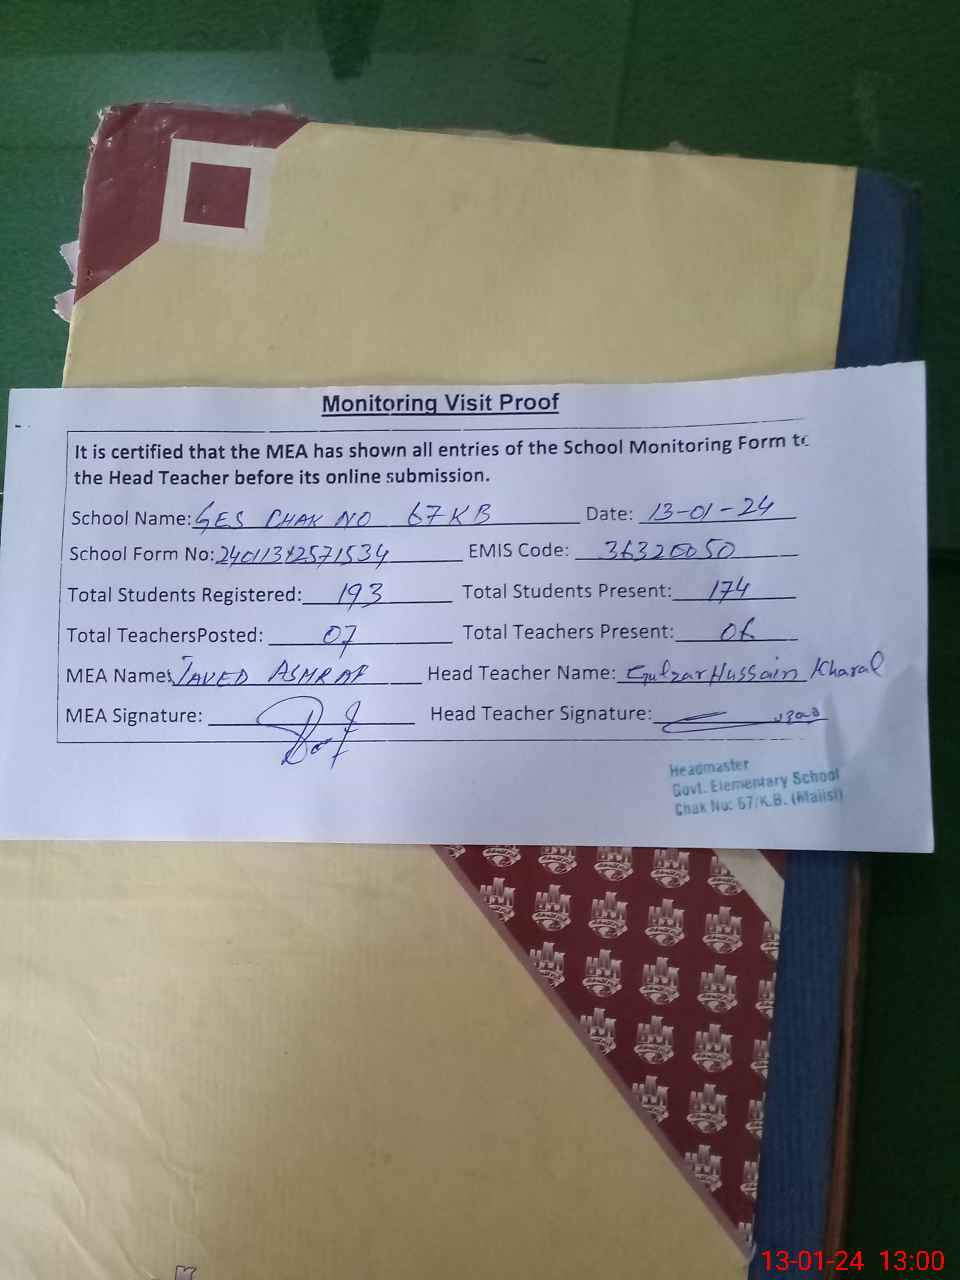 Monitoring Visit Proof
It is certified that the MEA has shown all entries of the School Monitoring Form to
the Head Teacher before its online submission.
School Name: GES CHAK NO 67KB Date: 13-01-24
School Form No: EMIS Code: 36320050
Total Students Registered: 193 Total Students Present: 174
Total TeachersPosted: 07 Total Teachers Present: 06
MEA Name: JAVED ASHRAF Head Teacher Name: Gulzar Hussain Kharal
MEA Signature: Head Teacher Signature:
Headmaster
Govt. Elementary School
Chak No: 67/K.B. (Mailsi)
13-01-24 13:00